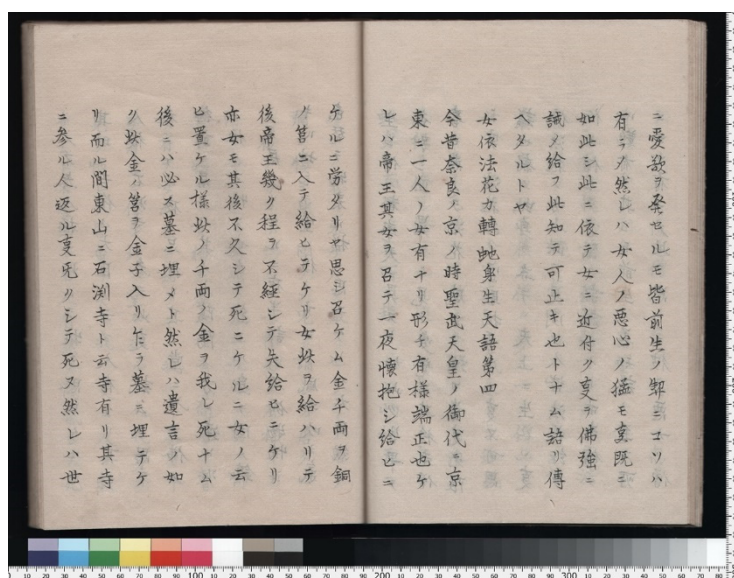 ニ愛欲ヲ発セルモ皆前生ノ契ニコソハ
有ラメ然レハ女人ノ悪心ノ猛キ㕝既ニ
如此シ此ニ依テ女ニ近付ク㕝ヲ佛強ニ
誡メ給フ此知テ可止キ也トナム語リ傳
ヘタルトヤ
女依法花力轉蛇身生天語第四
今昔奈良ノ京ノ時聖武天皇ノ御代ニ京
東ニ一人ノ女有ケリ形チ有様端正也ケ
レハ帝王其女ヲ召テ一夜懐抱シ給ヒニ
ケルニ労タリヤ思シ召ケム金千両ヲ銅
ノ筥ニ入テ給ヒテケリ女此ヲ給ハリテ
後帝王幾ク程ヲ不経シテ失給ヒニケリ
亦女モ其後不久シテ死ニケルニ女ノ云
ヒ置ケル様此ノ千両ノ金ヲ我レ死ナム
後ニハ必ス墓ニ埋メト然レハ遺言ノ如
ク此金ノ筥ヲ金子入リ乍ラ墓ニ埋テケ
リ而ル間東山ニ石渕寺ト云寺有リ其寺
ニ参ル人返ル㕝旡クシテ死ヌ然レハ世